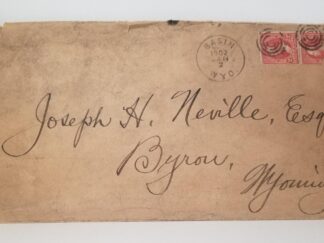 BASIN
1902
WYO.
Joseph H. Neville, Esq
Byron,
Wyomin